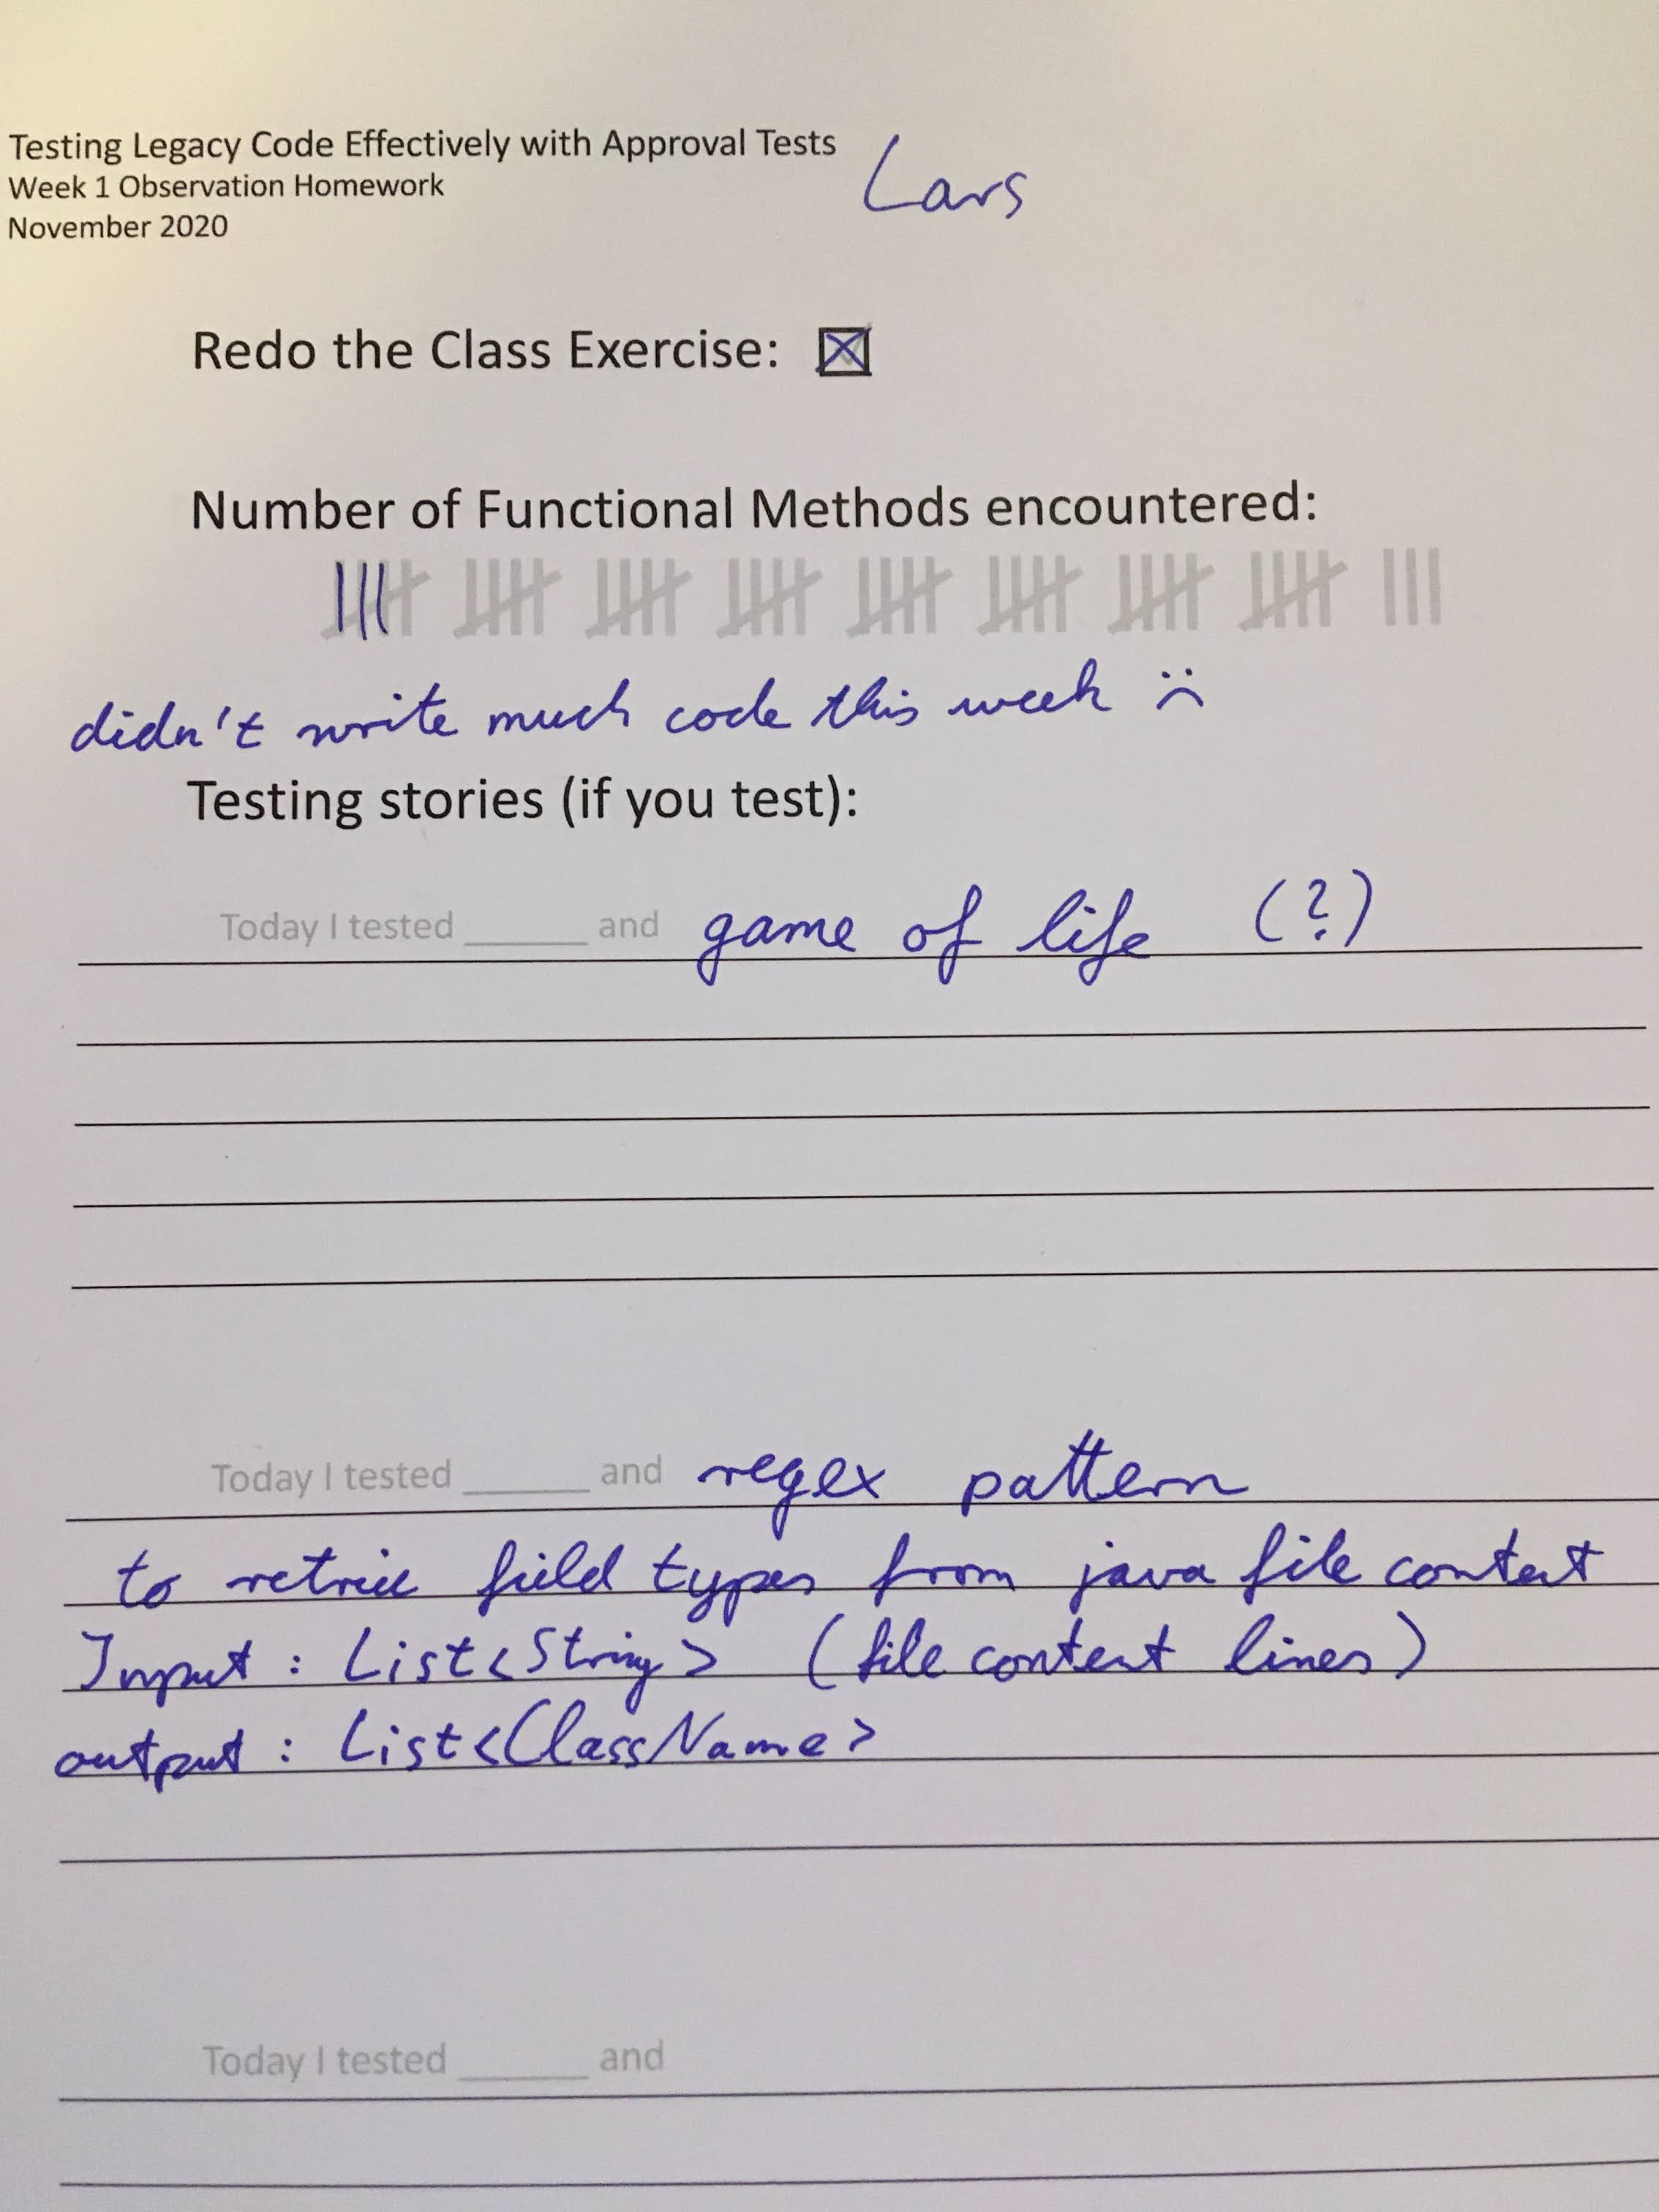 Testing Legacy Code Effectively with Approval Tests
Lars
Week 1 Observation Homework
November 2020
Redo the Class Exercise: ☒
Number of Functional Methods encountered:
|||
didn't write much code this week :(
Testing stories (if you test):
Today I tested ______ and game of life (?)
Today I tested ______ and regex pattern
to field types from java file content
Input : List<String> (file content lines)
output : List<ClassName>
Today I tested ______ and